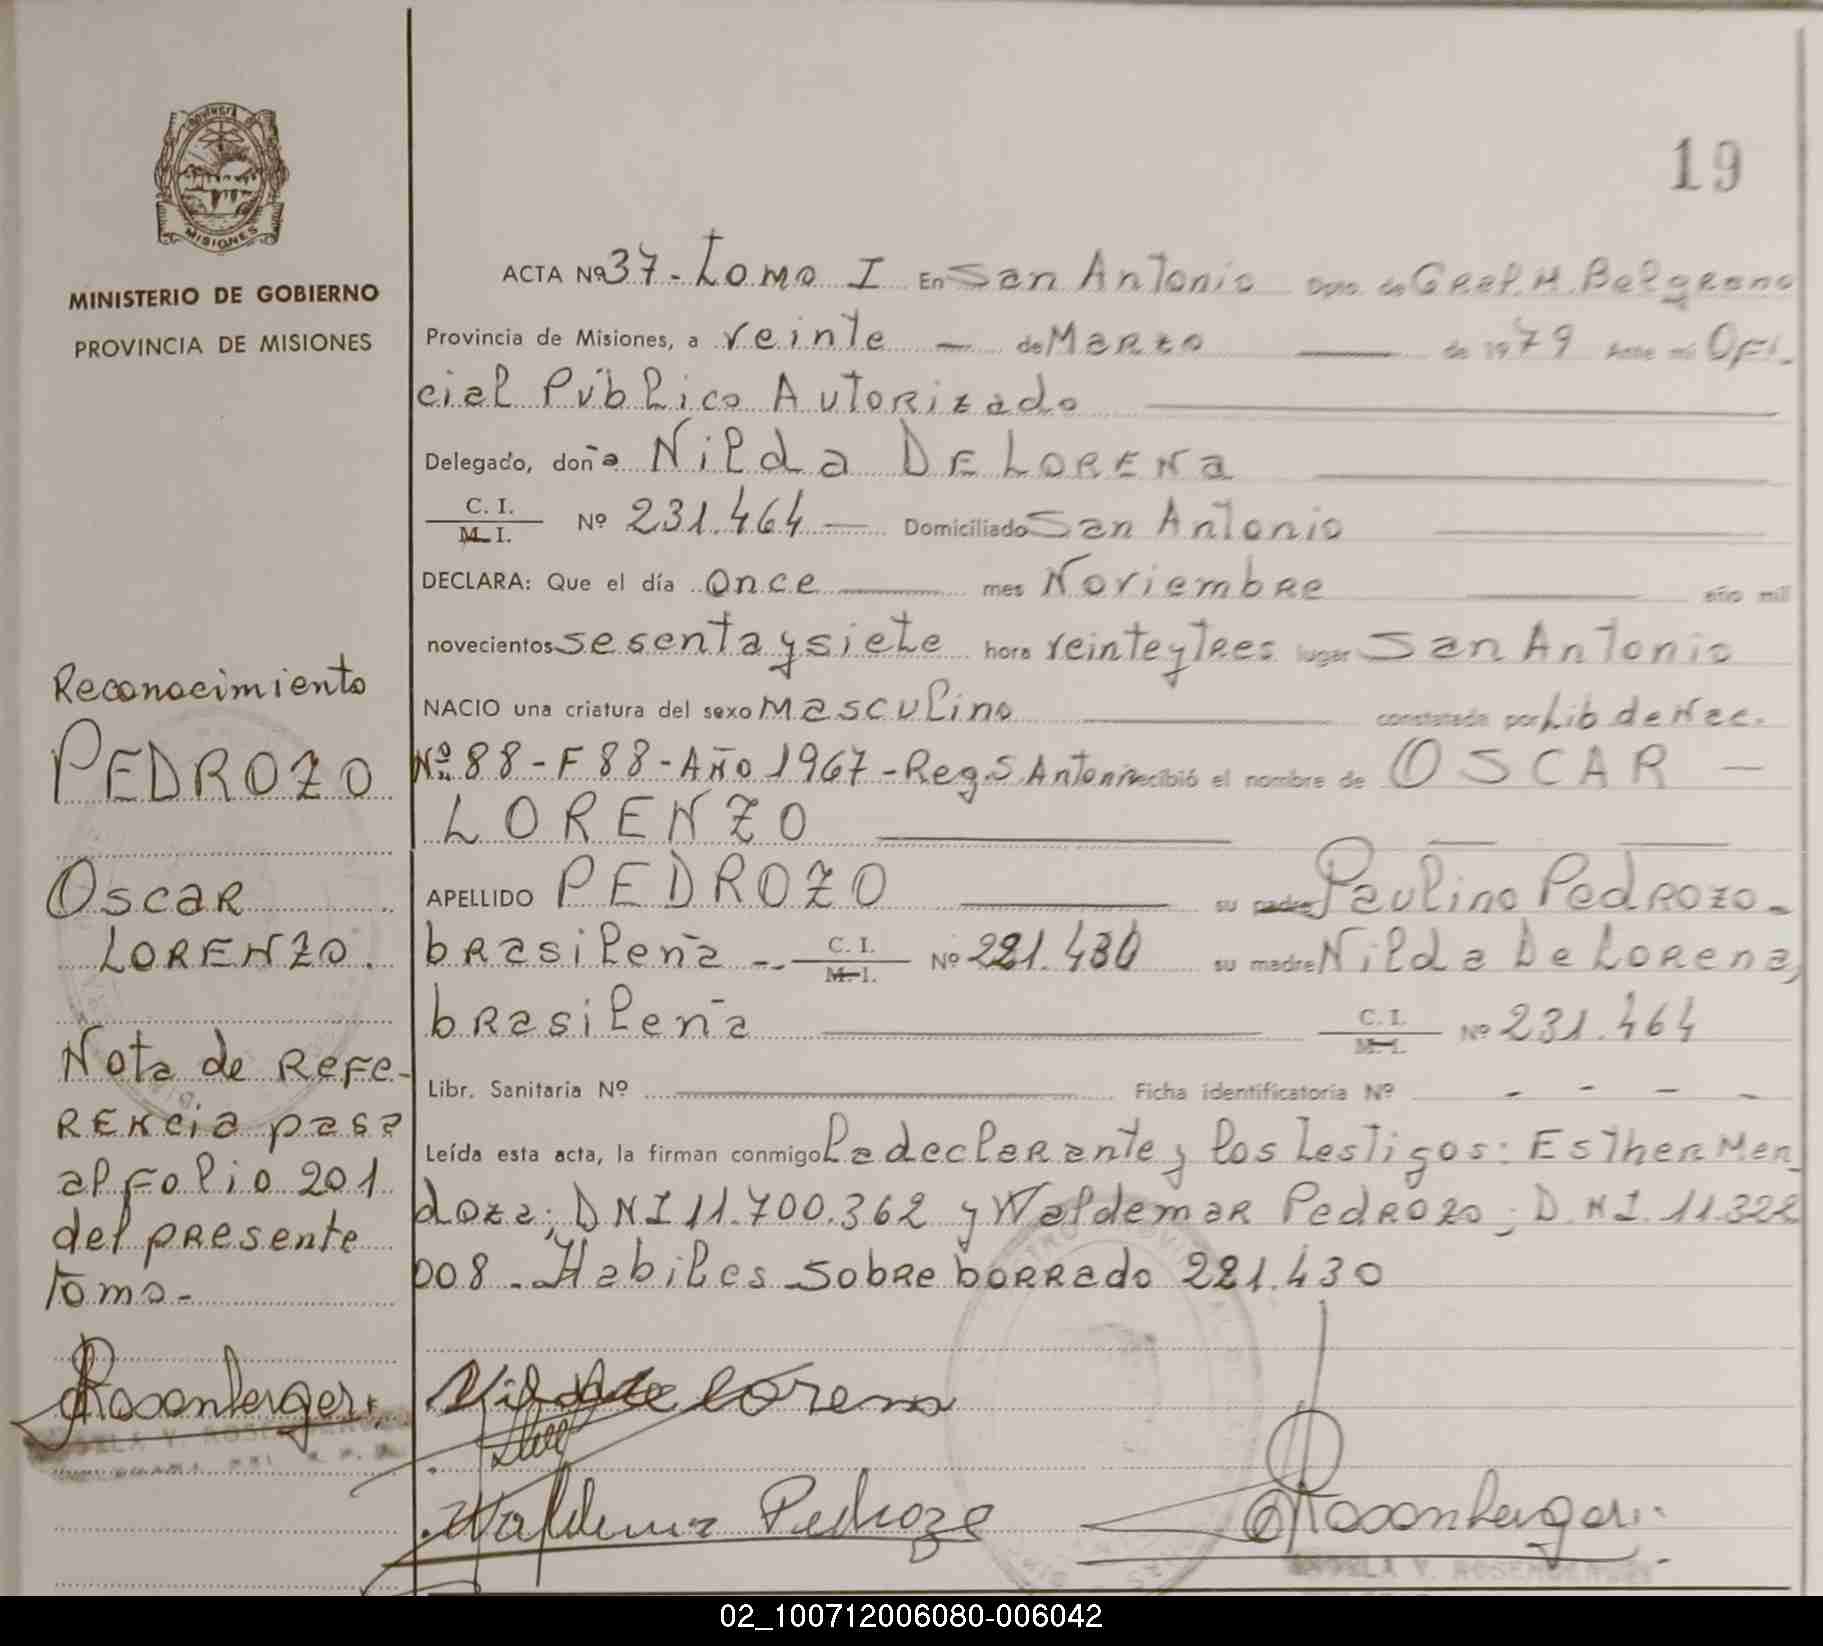 19
MISIONES
MINISTERIO DE GOBIERNO
PROVINCIA DE MISIONES
Reconocimiento
PEDROZO
Oscar
LORENZO.
Nota de Refe-
rencia pasa
al Folio 201
del presente
tomo.-
Rosenberger
ACTA Nº 37 - Tomo I En San Antonio Dpto. de Gral. M. Belgrano
Provincia de Misiones, a veinte — de Marzo — de 1979 Ante mi Ofi-
cial Público Autorizado
Delegado, doña Nilda De Lorena
C. I.
M. I. Nº 231.464 — Domiciliado San Antonio
DECLARA: Que el día once — mes Noviembre — año mil
novecientos sesenta y siete hora veinte y tres lugar San Antonio
NACIO una criatura del sexo Masculino — constatada por Lib de Nac.
Nº 88 - F 88 - Año 1967 - Reg. S Antonio recibió el nombre de OSCAR —
LORENZO
APELLIDO PEDROZO — su padre Paulino Pedrozo.
brasileña -- C. I.
M. I. Nº 221.430 su madre Nilda De Lorena,
brasileña — C. I.
M. I. Nº 231.464
Libr. Sanitaria Nº — Ficha identificatoria Nº - - - -
Leída esta acta, la firman conmigo la declarante y los testigos: Esther Men
doza; DNI 11.700.362 y Waldemar Pedrozo; D.N.I. 11.322
008 - Habiles Sobre borrado 221.430
Nilda de lorena
Waldemar Pedrozo
Rosenberger
02_100712006080-006042